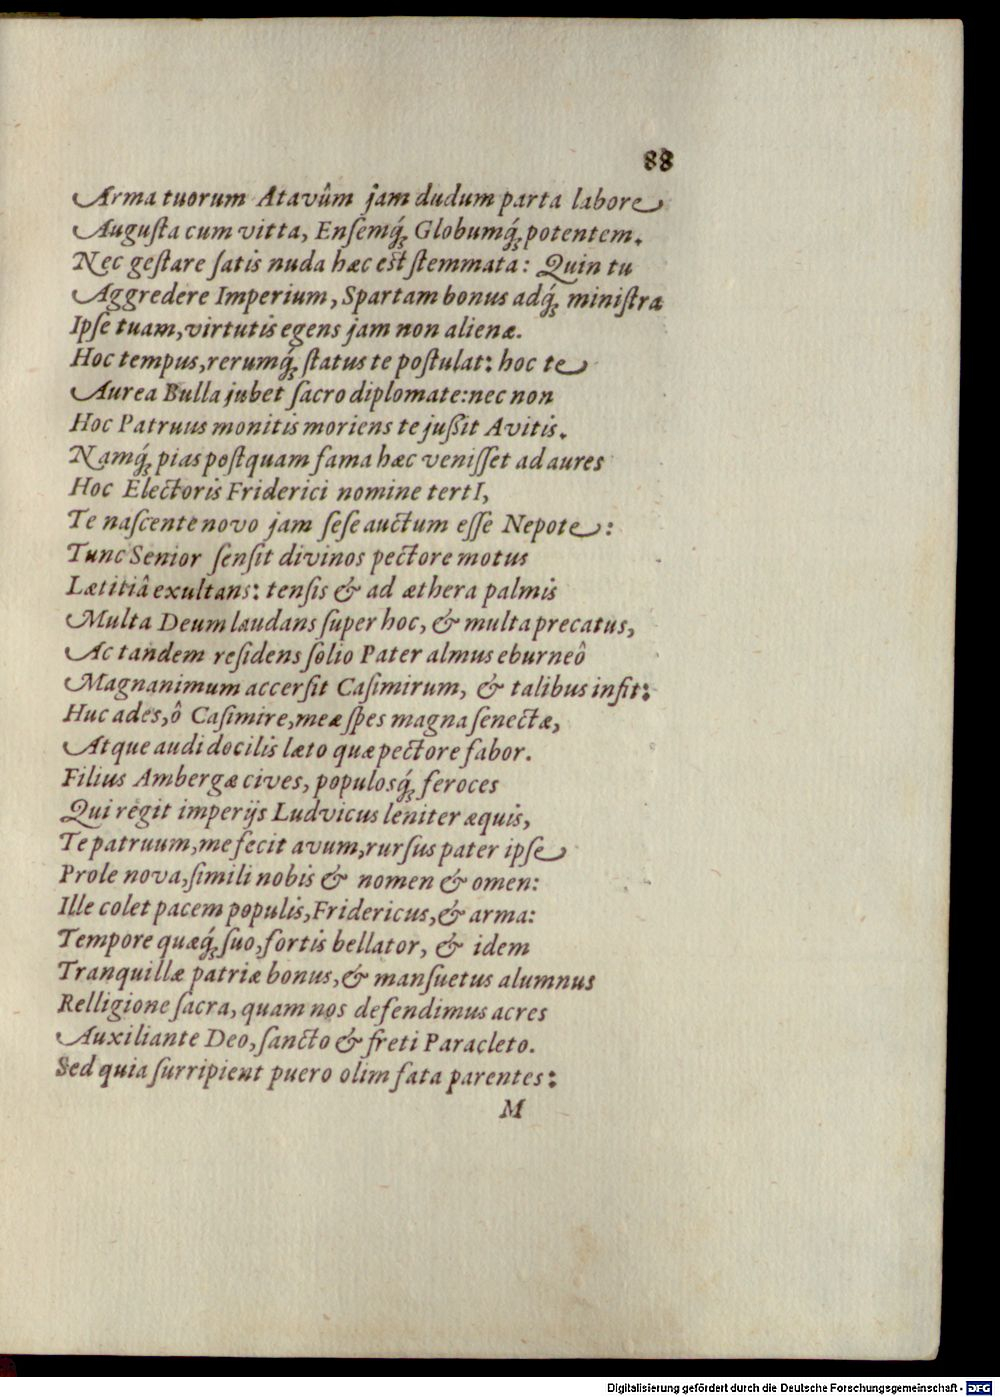 88
Arma tuorum Atavûm jam dudum parta labore
Augusta cum vitta, Ensemq́; Globumq́; potentem.
Nec gestare satis nuda hæc est stemmata: Quin tu
Aggredere Imperium, Spartam bonus adq́; ministra
Ipse tuam, virtutis egens jam non alienæ.
Hoc tempus, rerumq́; status te postulat: hoc te
Aurea Bulla jubet sacro diplomate: nec non
Hoc Patruus monitis moriens te jußit Avitis.
Namq́; pias postquam fama hæc venisset ad aures
Hoc Electoris Friderici nomine tertI,
Te nascente novo jam sese auctum esse Nepote:
Tunc Senior sensit divinos pectore motus
Lætitiâ exultans: tensis & ad æthera palmis
Multa Deum laudans super hoc, & multa precatus,
Ac tandem residens solio Pater almus eburneô
Magnanimum accersit Casimirum, & talibus infit:
Huc ades, ô Casimire, meæ spes magna senectæ,
Atque audi docilis læto quæ pectore fabor.
Filius Ambergæ cives, populosq́; feroces
Qui regit imperijs Ludvicus leniter æquis,
Te patruum, me fecit avum, rursus pater ipse
Prole nova, simili nobis & nomen & omen:
Ille colet pacem populis, Fridericus, & arma:
Tempore quæq́; suo, fortis bellator, & idem
Tranquillæ patriæ bonus, & mansuetus alumnus
Relligione sacra, quam nos defendimus acres
Auxiliante Deo, sancto & freti Paracleto.
Sed quia surripient puero olim fata parentes:
M
Digitalisierung gefördert durch die Deutsche Forschungsgemeinschaft - DFG